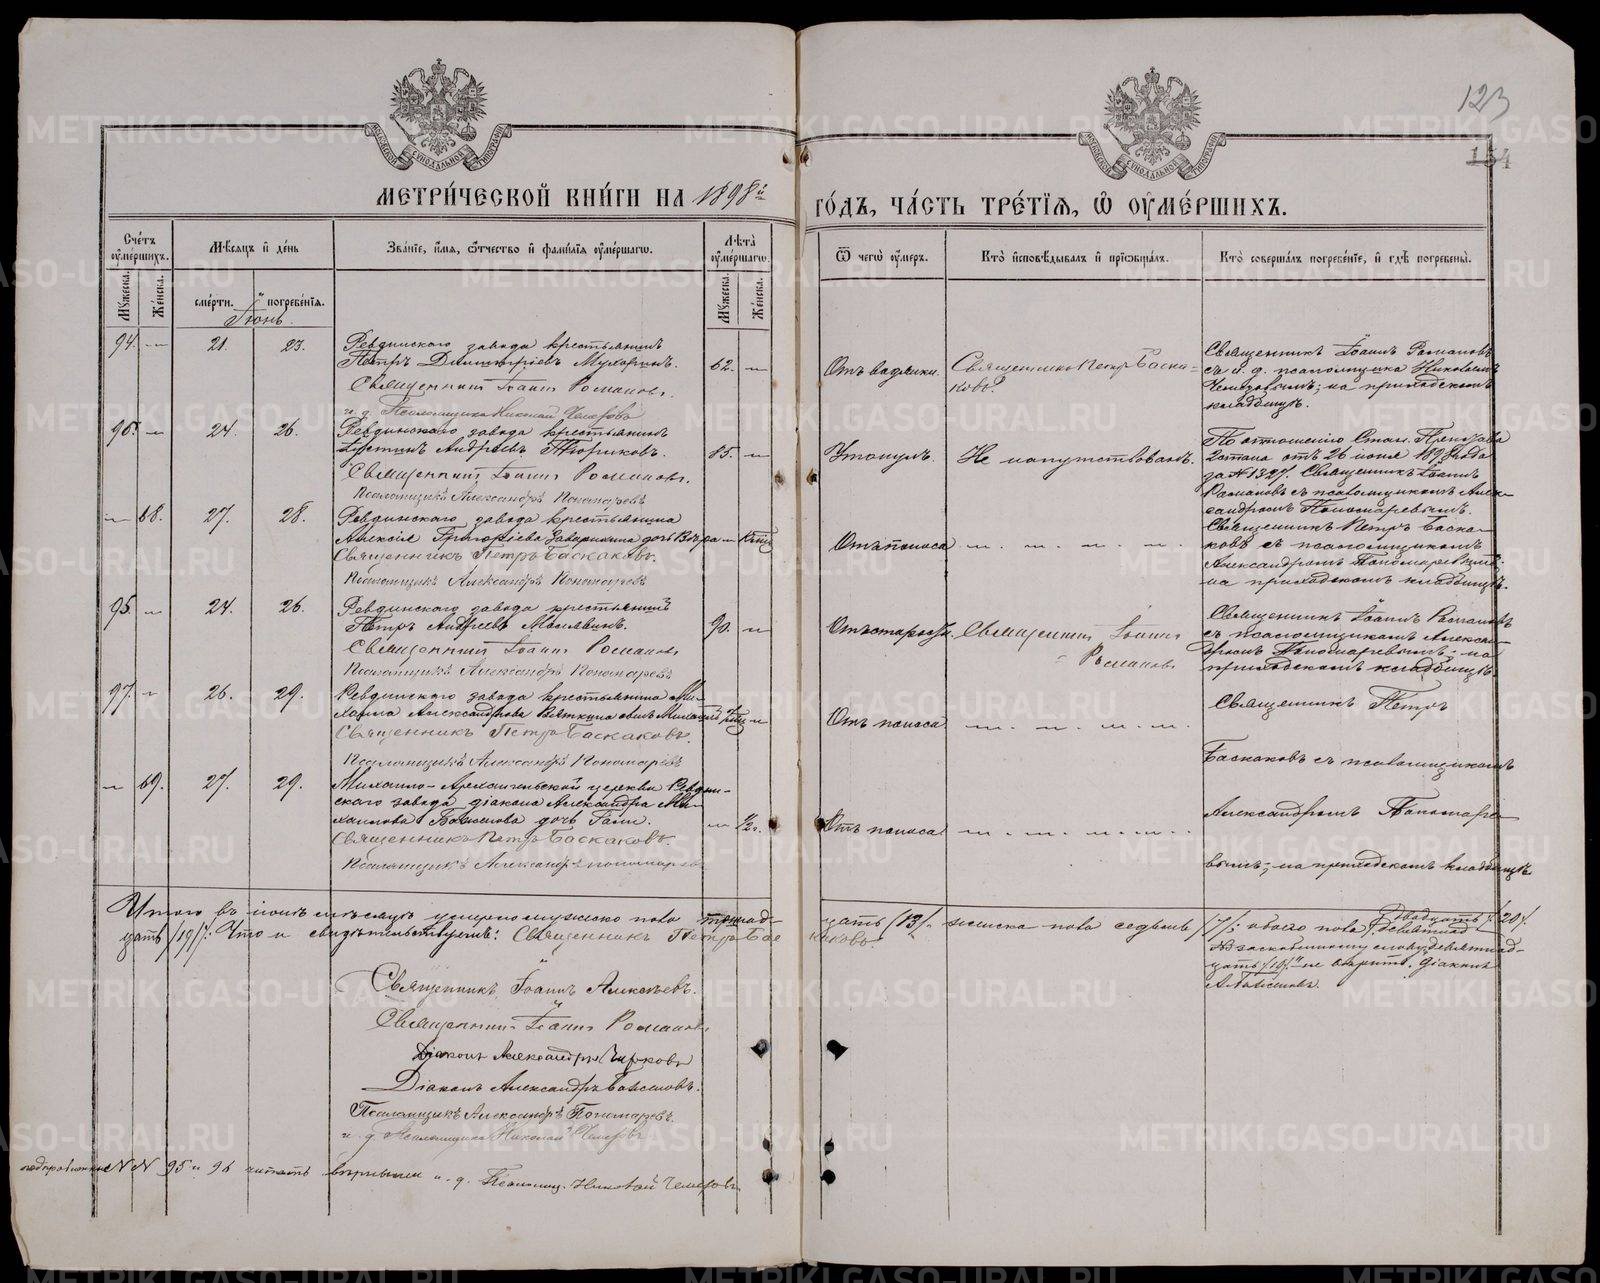 123
154
МОСКОВСКОЙ СѴНОДАЛЬНОЙ ТИПОГРАФІИ
МОСКОВСКОЙ СѴНОДАЛЬНОЙ ТИПОГРАФІИ
МЕТРИ́ЧЕСКОЙ КНИ́ГИ НА 1898й
ГО́ДЪ, ЧА́СТЬ ТРЕ́ТІѦ, Ѡ҆ ОУ҆МЕ́РШИХЪ.
Сче́тъ оу҆ме́ршихъ.
Мꙋ́жеска.
Же́нска.
Мѣ́сѧцъ и҆ де́нь
сме́рти.
погребе́нїѧ.
Іюнь.
Зва́нїе, и҆́мѧ, ѻ҆́тчество и҆ фамилїѧ оу҆ме́ршагѡ.
Лѣ́та оу҆ме́ршагѡ.
Мꙋ́жеска.
Же́нска.
Ѿ чегѡ̀ оу҆́меръ.
Кто̀ и҆сповѣ́дывалъ и҆ прїѡбща́лъ.
Кто̀ соверша́лъ погребе́нїе, и҆ гдѣ̀ погребены̀.
94. — 21. 23.
Ревдинского завода крестьянинъ
Петръ Димитріевъ Мухоринъ. 62. —
Священникъ Іоаннъ Романовъ.
и. д. Псаломщика Николай Чемезовъ
Отъ водянки.
Священникъ Петръ Баска-
ковъ.
Священникъ Іоаннъ Романовъ
съ и. д. псаломщика Николаемъ
Чемезовымъ; на приходскомъ
кладбищѣ.
96. — 24. 26.
Ревдинского завода крестьянинъ
Іустинъ Андреевъ Тюриковъ. 85. —
Священникъ Іоаннъ Романовъ.
Псаломщикъ Александръ Пономаревъ
Утонулъ.
Не напутствованъ.
По отношенію Стан. Пристава
2 стана отъ 26 іюня 1898 года
за № 1327. Священникъ Іоаннъ
Романовъ съ псаломщикомъ Алек-
сандромъ Пономаревымъ.
— 68. 27. 28.
Ревдинского завода крестьянина
Алексія Григоріева дочь Вѣра —
Священникъ Петръ Баскаковъ.
Псаломщикъ Александръ Пономаревъ
Отъ поноса
Священникъ Петръ Баска-
ковъ съ псаломщикомъ
Александромъ Пономаревымъ;
на приходскомъ кладбищѣ.
95. — 24. 26.
Ревдинского завода крестьянинъ
Петръ Андреевъ Маслявинъ. 90. —
Священникъ Іоаннъ Романовъ
Псаломщикъ Александръ Пономаревъ
Отъ старости.
Священникъ Іоаннъ
Романовъ
Священникъ Іоаннъ Романовъ
съ псаломщикомъ Алексан-
дромъ Пономаревымъ; на
приходскомъ кладбищѣ.
97. — 26. 29.
Ревдинского завода крестьянина Ми-
хаила Александрова Вяткина сынъ
Священникъ Петръ Баскаковъ.
Псаломщикъ Александръ Пономаревъ
Отъ поноса
Священникъ Петръ
Баскаковъ съ псаломщикомъ
— 69. 27. 29.
Михаило-Архангельской церкви Ревдин-
скаго завода діакона Александра Ми-
хаилова дочь — 1/2 г.
Священникъ Петръ Баскаковъ.
Псаломщикъ Александръ Пономаревъ
Отъ поноса
Александромъ Пономаре-
вымъ; на приходскомъ кладбищѣ
Итого въ іюнѣ мѣсяцѣ умерло мужеска пола тринад-
цать /13/. женска пола седьмь /7/: обоего пола двадцать /20/.
девятнад-
цать /19/. Что и свидѣтельствуемъ: Священникъ Петръ Бас
каковъ.
По заскобленному слову „девятнад-
цать /19/" не вѣрить. Діаконъ
Священникъ Іоаннъ Алексѣевъ.
Священникъ Іоаннъ Романовъ
Діаконъ Александръ Чирковъ
Діаконъ Александръ
Псаломщикъ Александръ Пономаревъ.
и. д. Псаломщика Николай Чемезовъ
подправленные №№ 95 и 96 читать вѣрными и. д. Псаломщ. Николай Чемезовъ
METRIKI.GASO-URAL.RU